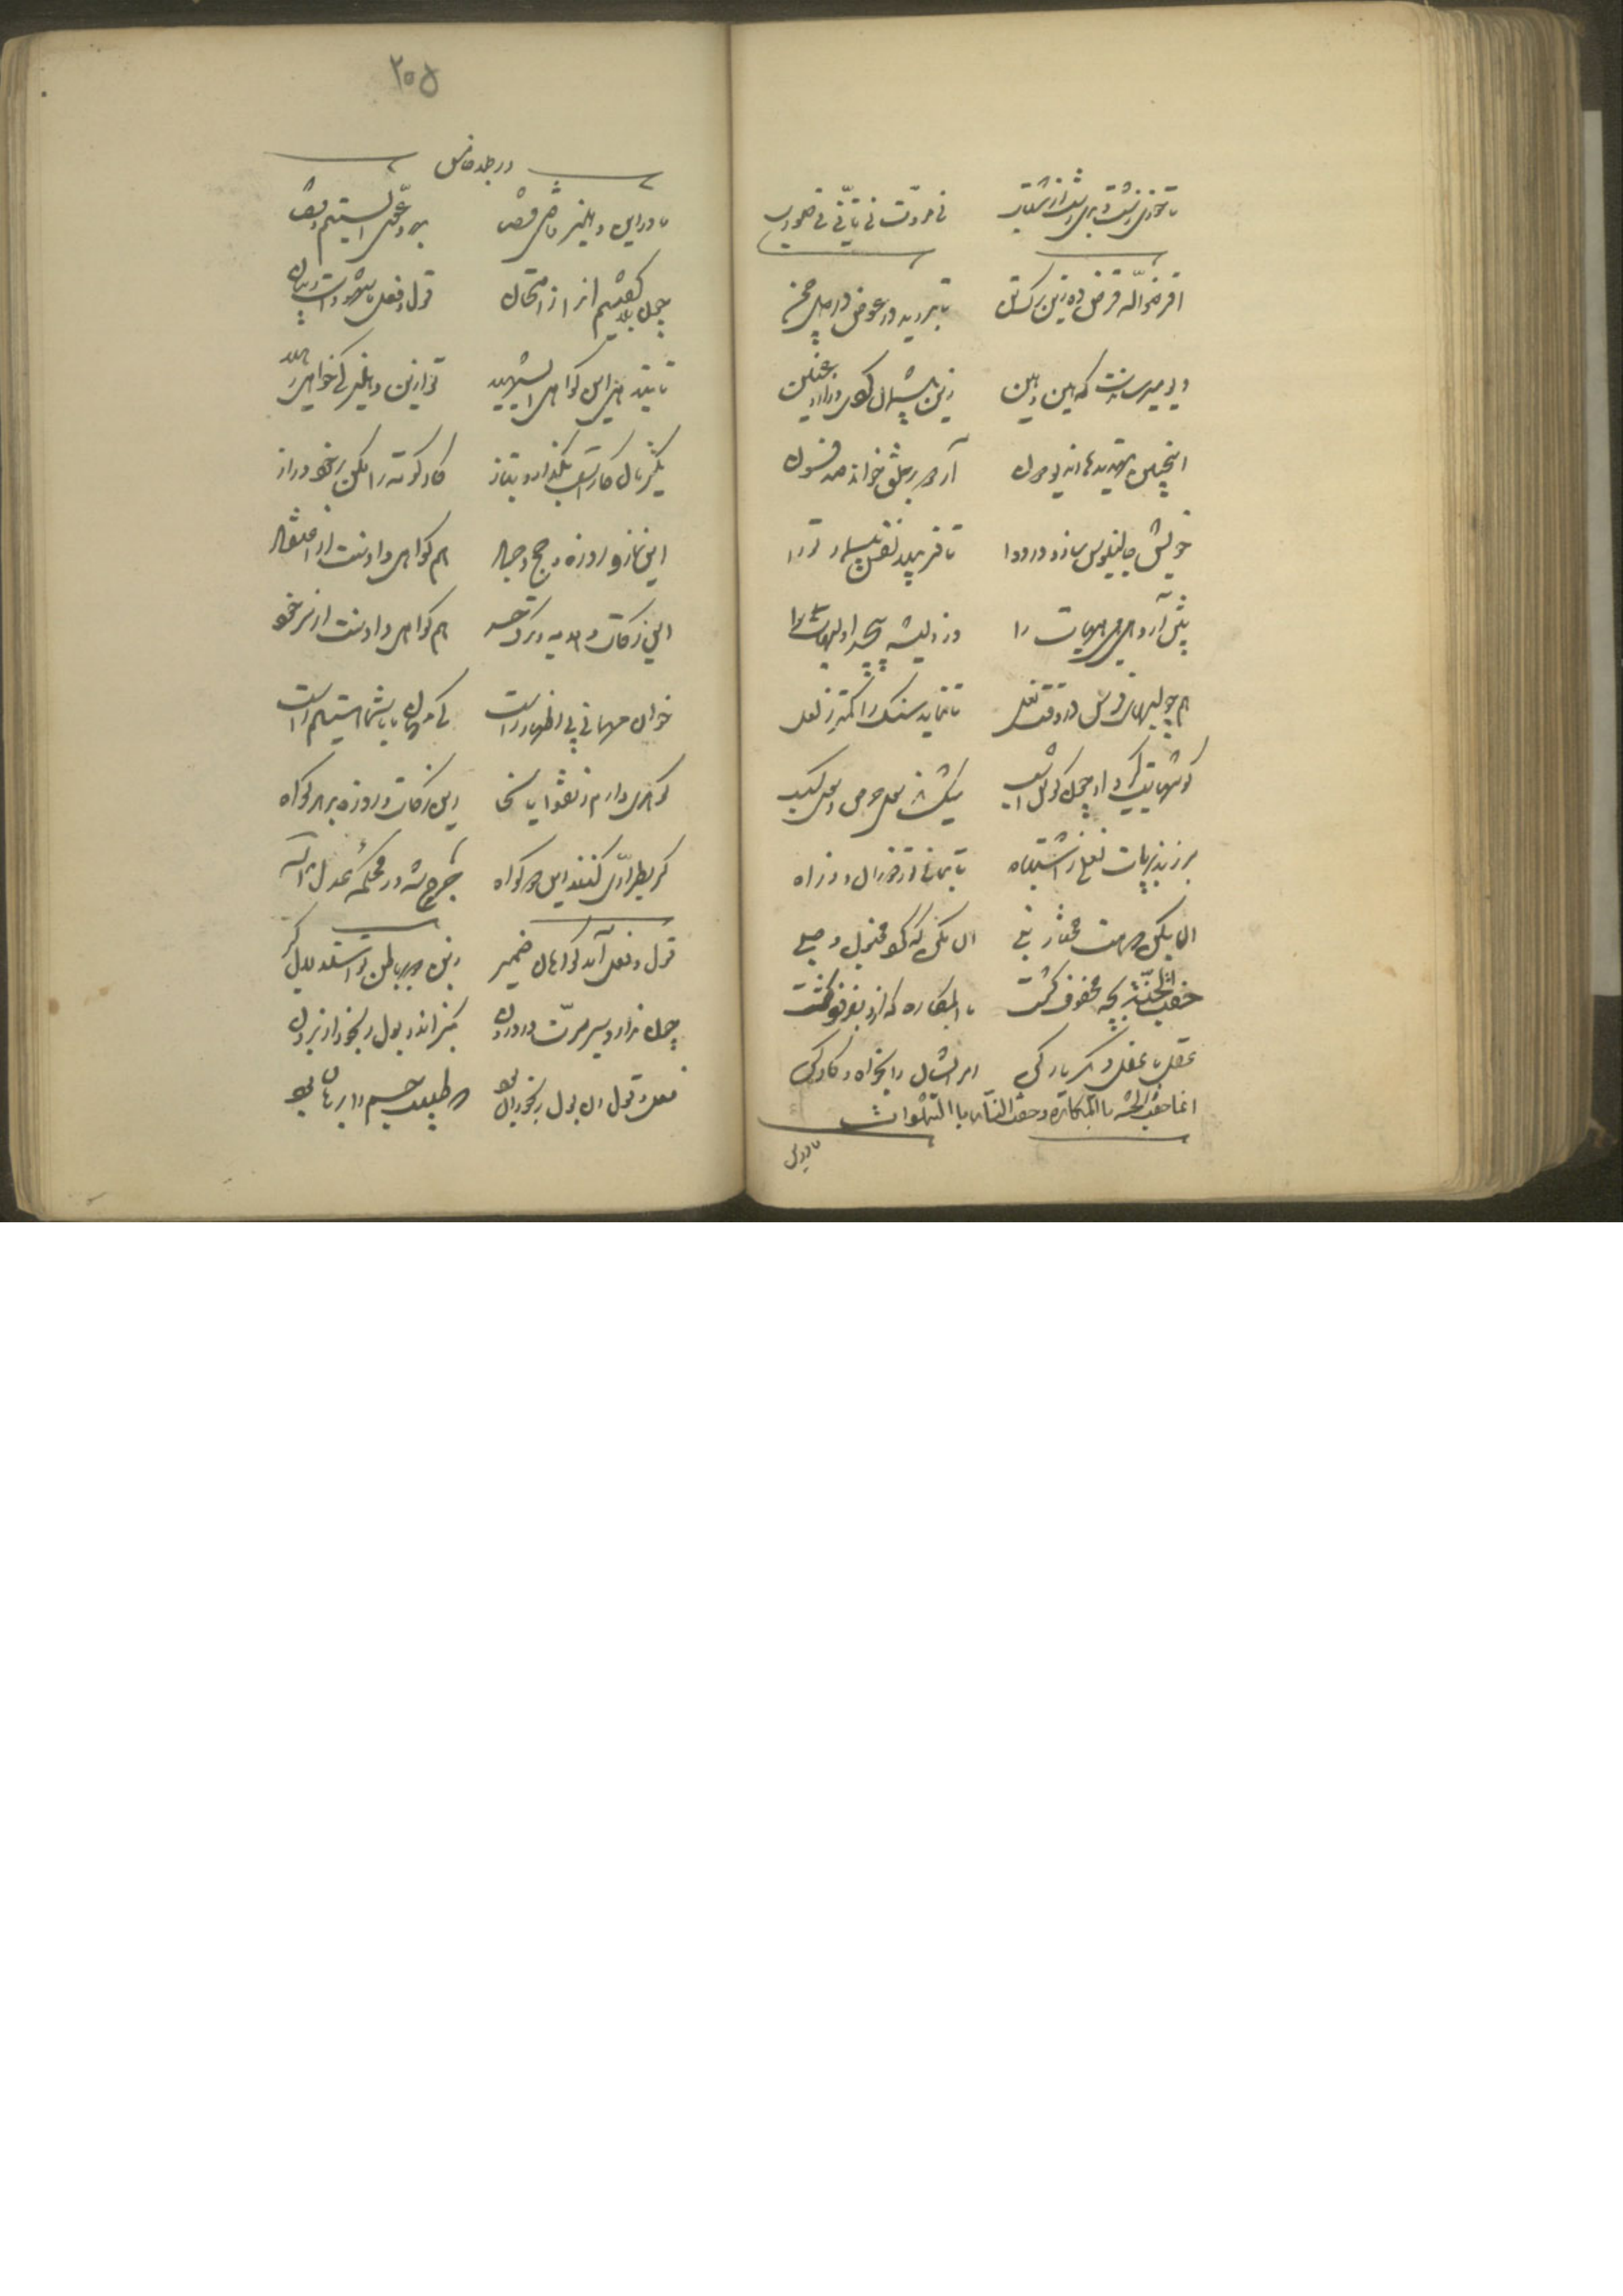 تا خوری زشت و بری زشت از شتاب نی مروّت نی تأنّی نی صواب
اقرضوا الله قرض ده زین برگ تن تا بروید در عوض در دل چمن
دیو میترساندت که هین و هین زین پشیمان گردی
اینچنین تهدیدها آن دیو دون آرد و بر خلق خواند صد فسون
خویش جالینوس سازد در دوا تا فریبد نفس بیمار ترا
پیش آرد هیهی و هیهات را وز لویشه پیچد او لبهات را
همچو لبهای فرس در وقت نعل تا نماید سنک را کمتر ز لعل
گوشهایت گیرد او چون گوش اسب میکشاند سوی حرص و سوی کسب
برزند بر پات نعلی ز اشتباه تا بمانی تو ز درد آن ز راه
آن بکن که هست مختار نبی آن مکن که کرد مجنون و صبی
حفّت الجنّه بچه محفوف کشت بالمکاره که ازو افزود کشت
عقل با عقل دکر یار کن امر ایشان را بخواه و کار کن
انما حفت الجنّه بالمکاره و حفت النّار بالشهوات
۲۰۵
در جلد خامس
ما در این دهلیز قاضی قضا بهر دعوی الستیم و بلی
چون بلی کفتیم آنرا ز امتحان قول و فعل ما شهودست و بیان
تا بندهی این کواهی ای شهید تو ازین دهلیز کی خواهی رهید
یکزمان کارست بگذار و بتاز کار کوته را مکن بر خود دراز
این نماز و روزه و حج و جهاد هم کواهی دادنست از اعتقاد
این زکات و هدیه و ترک حسد هم کواهی دادنست از سر خود
خوان مهمانی پی اظهار راست کای مهان ما با شما هستیم راست
کوهری دارم ز تقوا یا سخا این زکات و روزه بر هر دو کواه
کر بطرّاری کنند این دو کواه جرح شد در محکمهٔ عدل اله
قول و فعل آمد کواهان ضمیر زین دو بر باطن تو استدلال کیر
چون ندارد سیر سرّت در درون بنکر اندر بول رنجور از برون
فعل و قول آن بول رنجوران بود که طبیب جسم را برهان بود